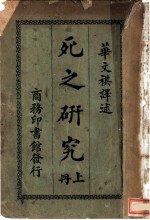 華文祺譯述
死之研究
上冊
商務印書館發行